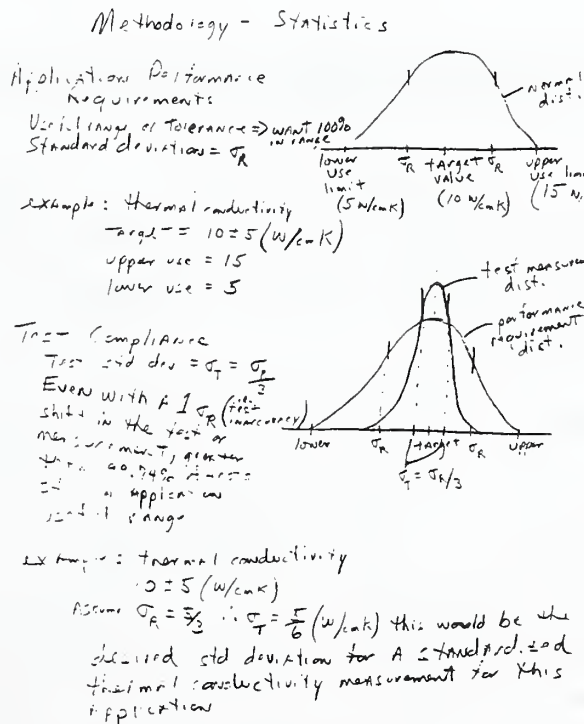 Methodology - Statistics
Application Performance
Requirements
Useful range or Tolerance => WANT 100%
IN RANGE
Standard deviation = σR
normal
dist.
lower
use
limit
(5 W/cmK)
σR
target
value
(10 W/cmK)
σR
upper
use limit
(15 W/
example: thermal conductivity
Target = 10 ± 5 (W/cmK)
upper use = 15
lower use = 5
test measure
dist.
performance
requirement
dist.
Test Compliance
Test std dev = σT = σR/3
Even with A 1 σR (i.e. test inaccuracy)
shift in the test or
measurement, greater
than
application
useful range
lower σR target σR upper
σT = σR/3
example: thermal conductivity
10 ± 5 (W/cmK)
Assume σR = 5/3 ∴ σT = 5/6 (W/cmK) this would be the
desired std deviation for A standardized
thermal conductivity measurement for this
Application